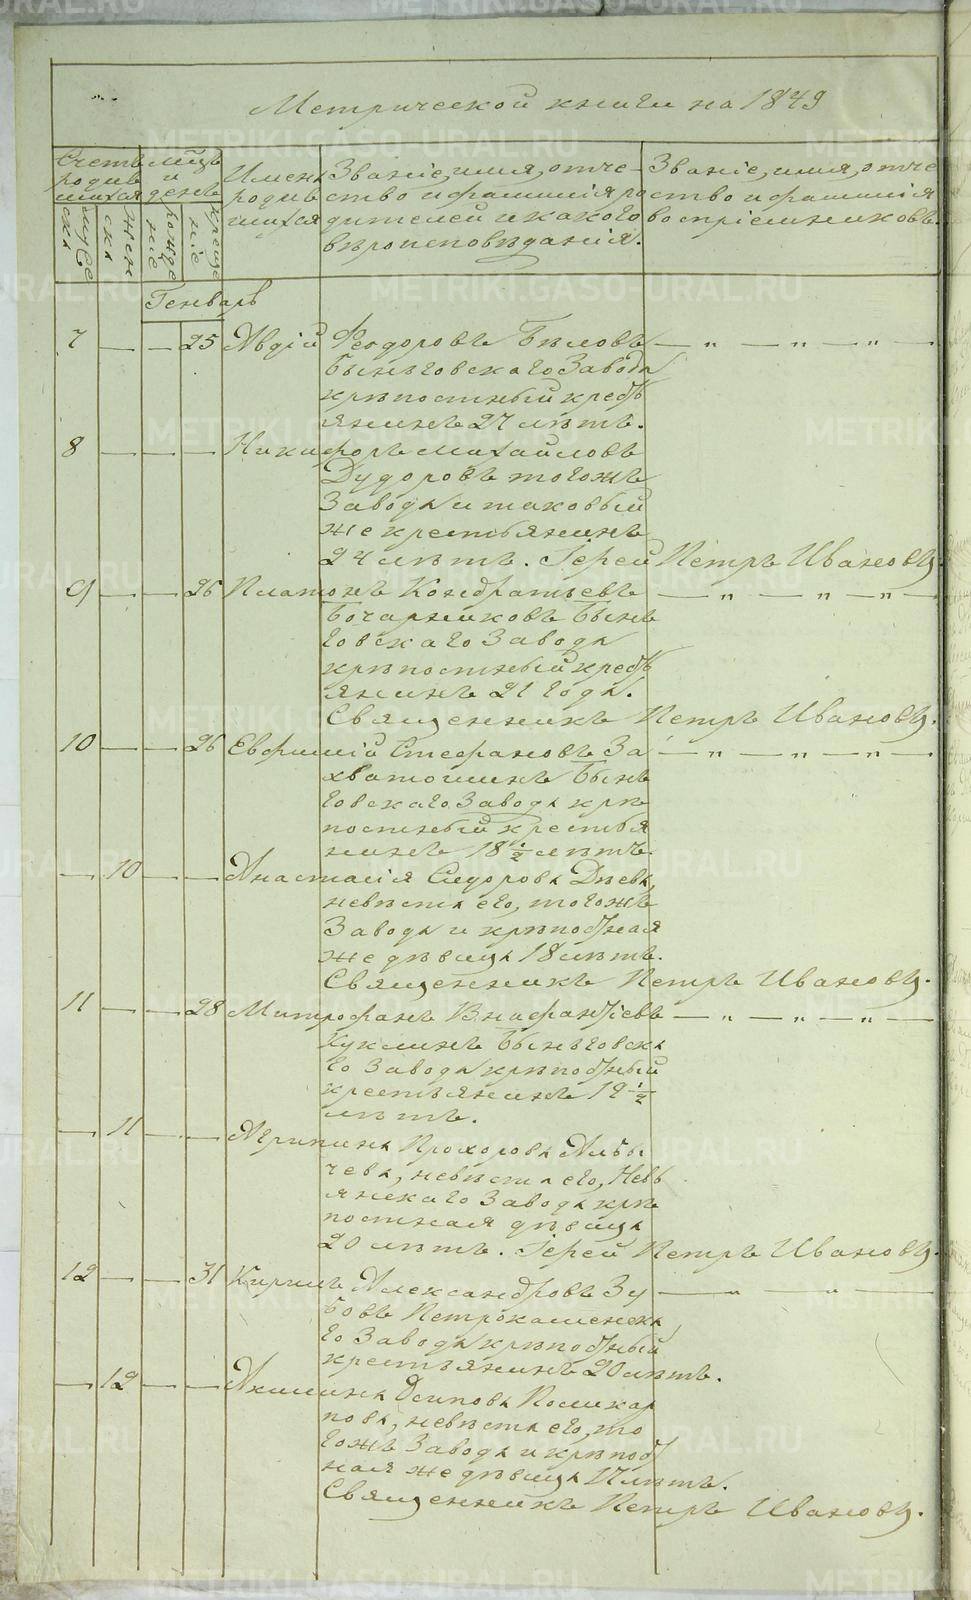 Метрической книги на 1849
Счетъ родив шихся
мужес ска
жен ска
Мѣцъ и день
рожде ніе
креще ніе
Имена родив шихся
Званіе, имя, отче-
ство и фамилія ро
дителей и какого
вѣроисповѣданія.
Званіе, имя, отче
ство и фамилія
воспріемниковъ.
Генварь
7 — — 25 Авдій Феодоровъ Бѣловъ — „ — „ — „ —
Быньговскаго Завода
крѣпостный кресть
янинъ 27 лѣтъ.
8 — — — Никифоръ Михайловъ
Дудоровъ тогожъ
Завода и таковый
же крестьянинъ
24 лѣтъ. Іерей Петръ Ивановъ.
9 — — 26 Платонъ Кондратьевъ — „ — „ — „ —
Бочарниковъ Бынь
говскаго Завода
крѣпостный кресть
янинъ 21 года.
Священникъ Петръ Ивановъ.
10 — — 26 Евфимій Стефановъ За — „ — „ — „ —
хватошинъ Бынь
говскаго Завода крѣ
постный крестья
нинъ 18 ½ лѣтъ.
— 10 — — Анастасія Сидорова Дѣева,
невѣста его, тогожъ
Завода и крѣпостная
же дѣвица 18 лѣтъ.
Священникъ Петръ Ивановъ.
11 — — 28 Митрофанъ — „ — „ — „ —
Куклинъ Быньговска
го Завода крѣпостный
крестьянинъ 19 ½
лѣтъ.
— 11 — — Агрипина Прохорова
чева, невѣста его, Невь
янскаго Завода крѣ
постная дѣвица
20 лѣтъ. Іерей Петръ Ивановъ.
12 — — 31 Кирилъ Александровъ Зу — „ — „ —
бовъ Петрокаменска
го Завода крѣпостный
крестьянинъ 20 лѣтъ.
— 12 — — Акилина Осипова Поликар
пова, невѣста его, то
гожъ Завода и крѣпост
ная же дѣвица 17 лѣтъ.
Священникъ Петръ Ивановъ.
METRIKI.GASO-URAL.RU